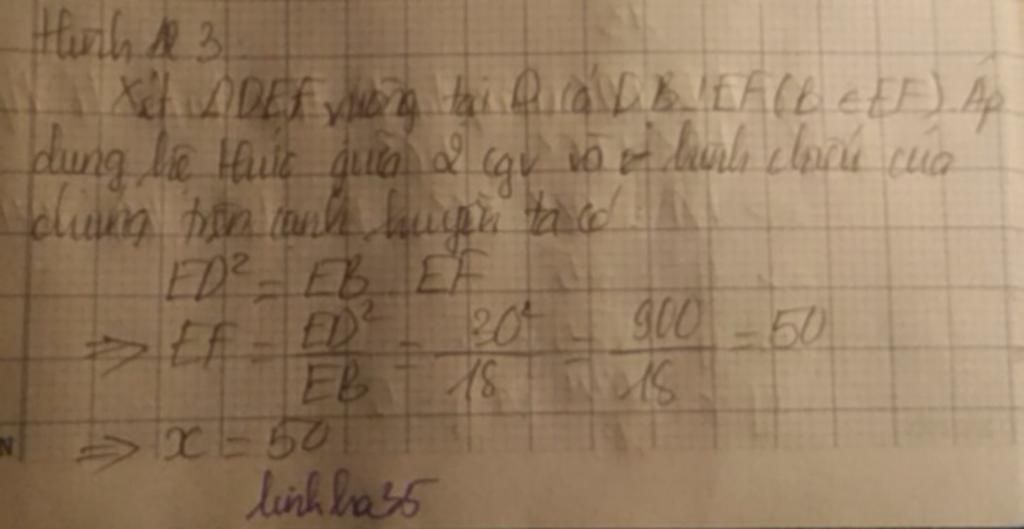 Hình 3
Xét ΔDEF vuông tại D có DB ⊥ EF (B ∈ EF). Áp
dụng hệ thức giữa 2 cgv và hình chiếu của
chúng trên cạnh huyền ta có
ED² = EB EF
=> EF = ED²/EB = 30²/18 = 900/18 = 50
=> x = 50
linhha35